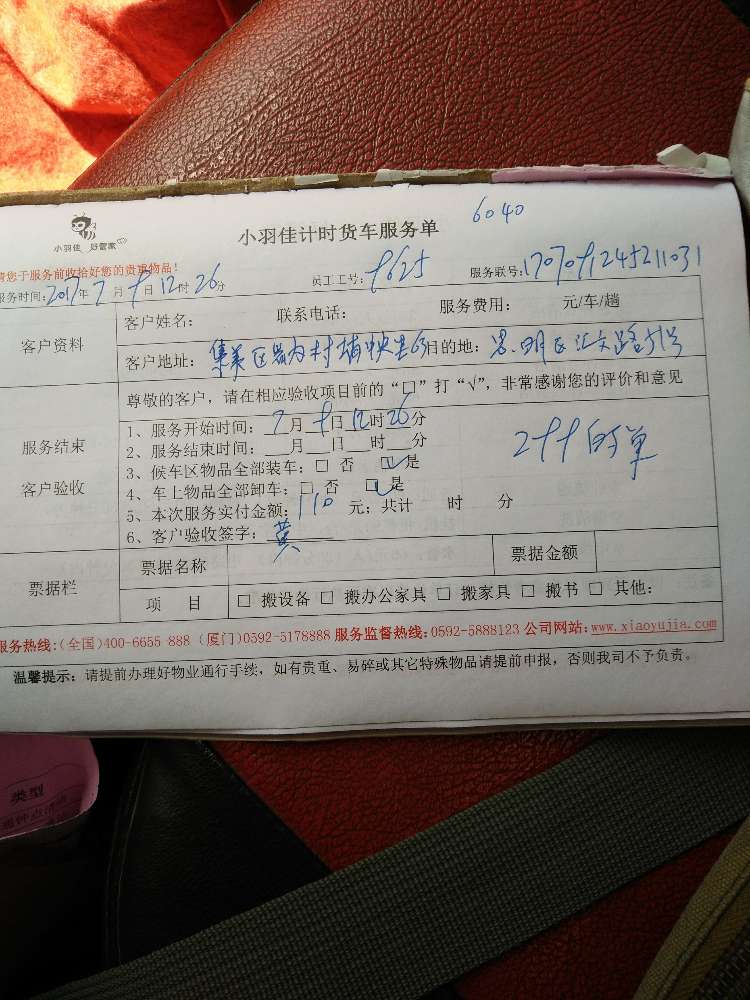 6040
小羽佳 好管家
小羽佳计时货车服务单
请您于服务前收拾好您的贵重物品！
服务时间：2017年7月9日12时26分 员工工号：9625 服务联号：1707091245211031
客户资料
客户姓名： 联系电话： 服务费用： 元/车/趟
客户地址：集美区 内村 目的地：思明区汇文路 号
服务结束
客户验收
尊敬的客户，请在相应验收项目前的“口”打“√”，非常感谢您的评价和意见
1、服务开始时间：7月9日12时26分
2、服务结束时间：___月___日___时___分
299的单
3、候车区物品全部装车：□ 否 □是
4、车上物品全部卸车：□ 否 □是
5、本次服务实付金额：110 元；共计 时 分
6、客户验收签字：黄
票据栏
票据名称 票据金额
项 目 □ 搬设备 □ 搬办公家具 □ 搬家具 □ 搬书 □ 其他：
服务热线：(全国)400-6655 888 (厦门)0592-5178888 服务监督热线：0592-5888123 公司网站：www.xiaoyujia.com
温馨提示：请提前办理好物业通行手续，如有贵重、易碎或其它特殊物品请提前申报，否则我司不予负责。
类型